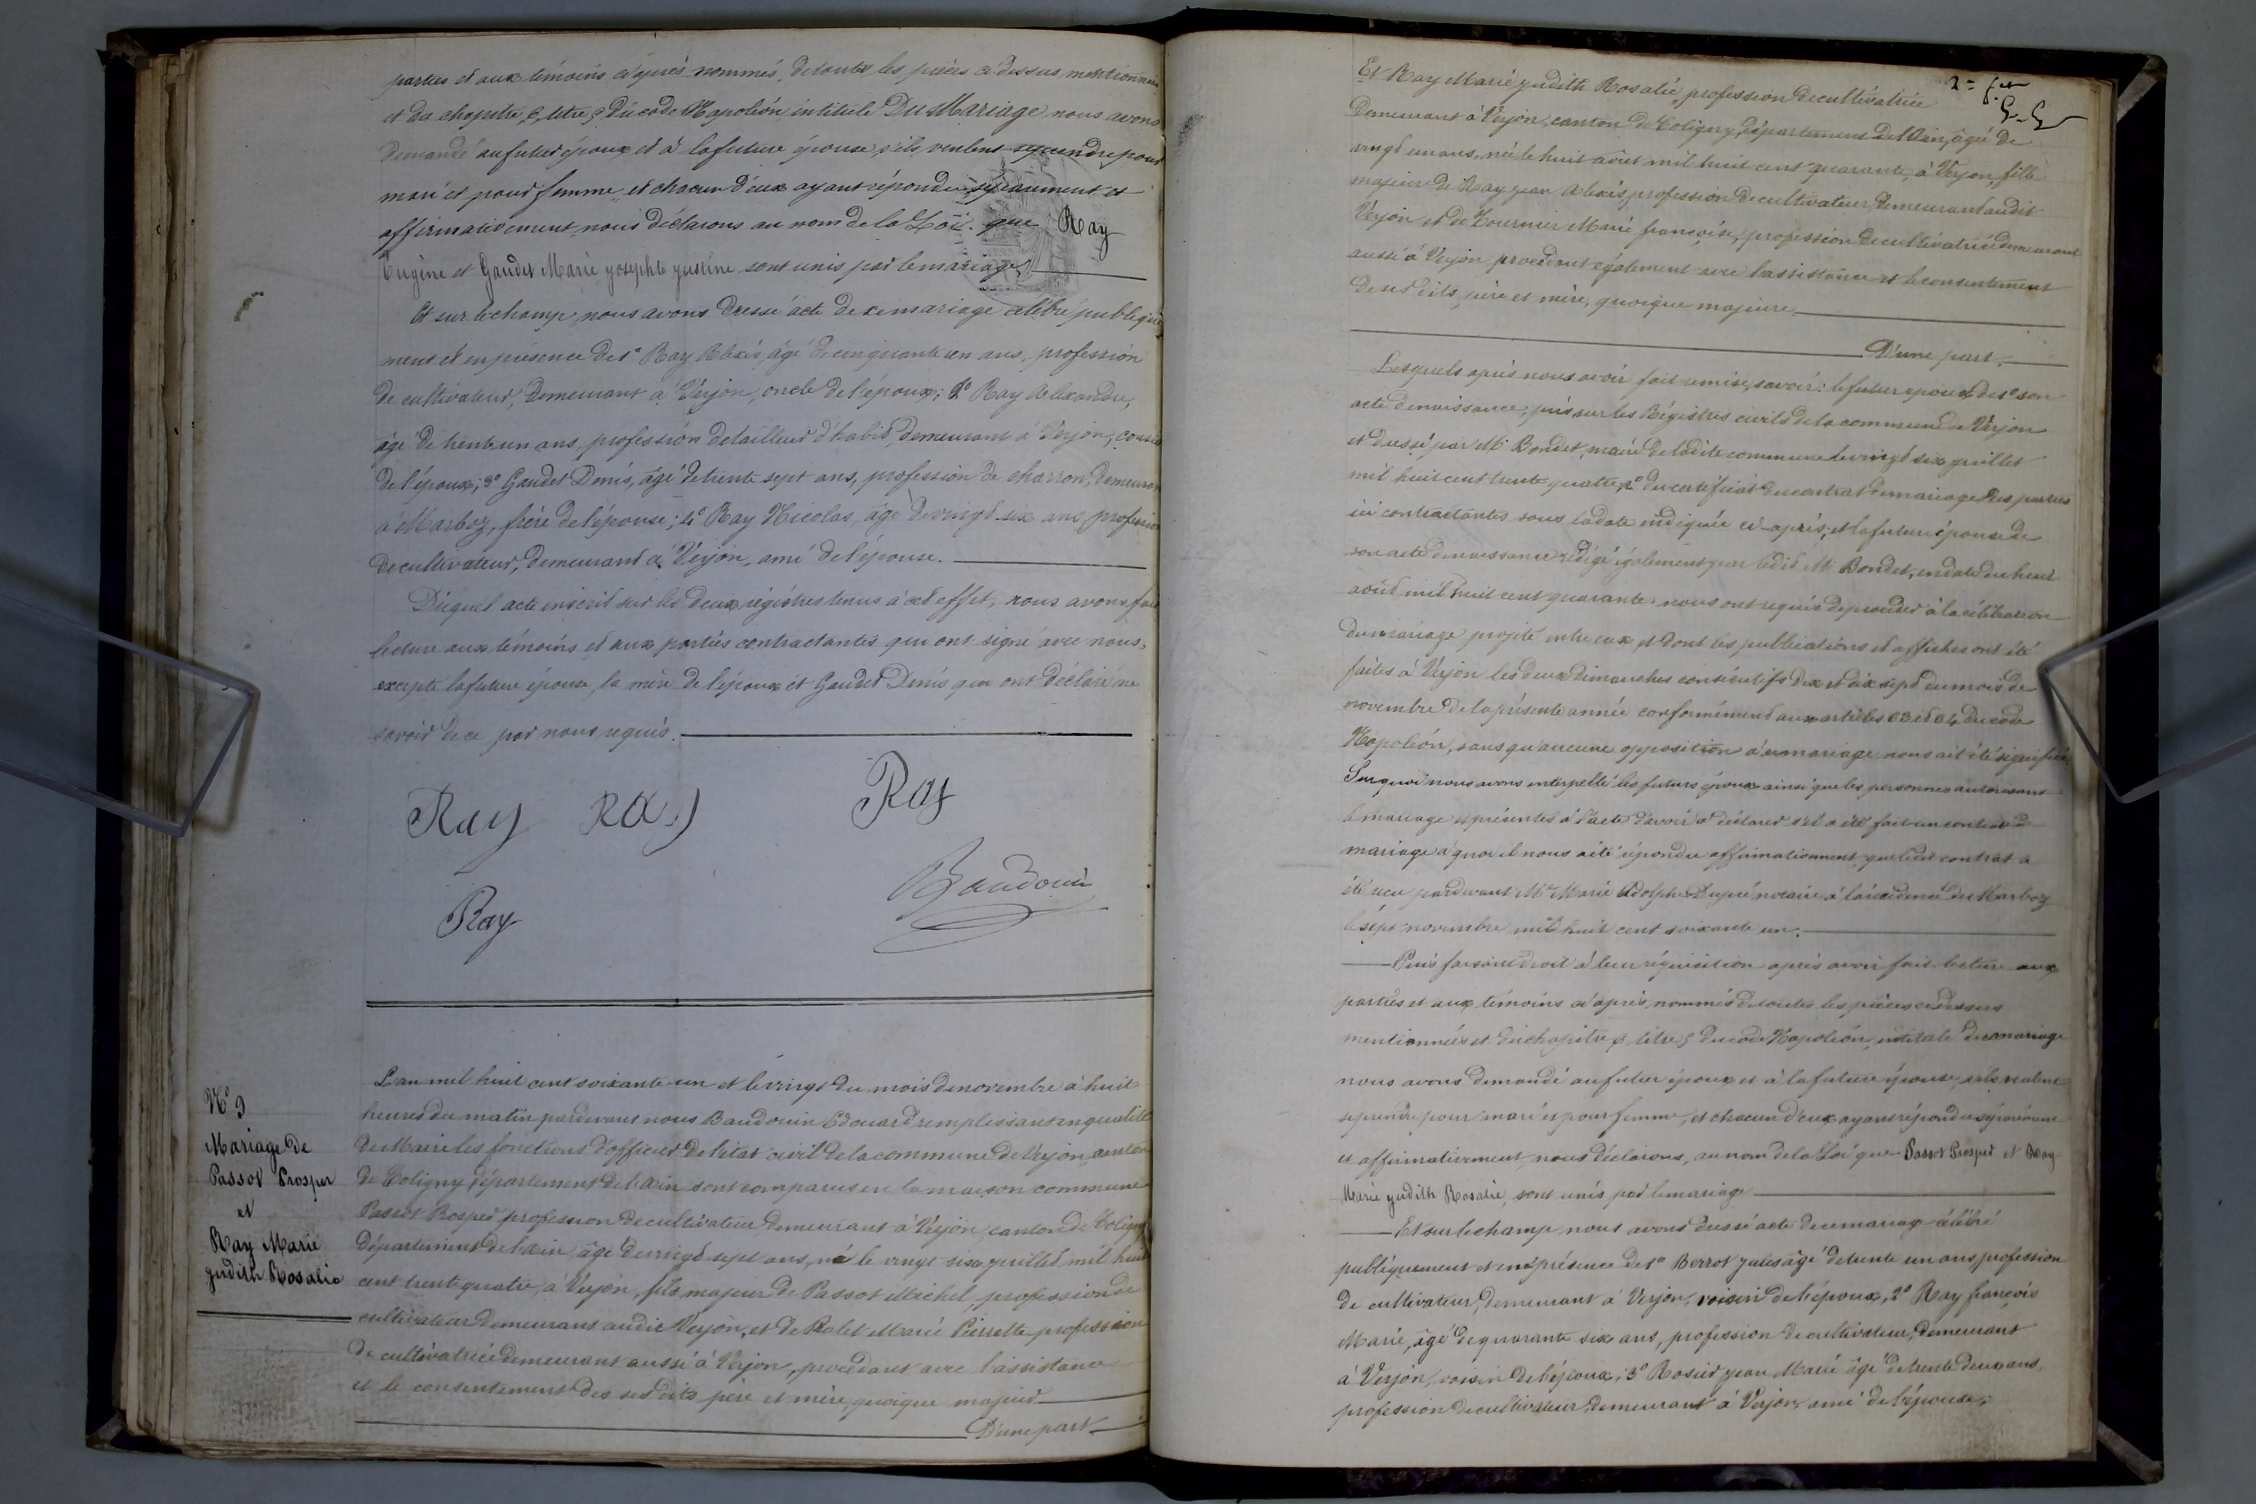 parties et aux témoins ci après nommés, de toutes les pièces ci dessus mentionnées
et du chapitre 6, titre 5 du code Napoléon intitulé Du Mariage nous avons
demandé au futur époux et à la future épouse s'ils veulent se prendre pour
mari et pour femme, et chacun d'eux ayant répondu séparément et
affirmativement nous déclarons au nom de la Loi que Ray
Eugène et Gaudet Marie Josephte Justine sont unis par le mariage
Et sur le champ, nous avons dressé acte de ce mariage célébré publique
ment et en présence de 1° Ray Alexis, âgé de cinquante un ans, profession
de cultivateur, demeurant à Verjon, oncle de l'époux; 2° Ray Alexandre,
âgé de trente un ans, profession de tailleur d'habit, demeurant à Verjon, cousin
de l'époux; 3° Gaudet Denis, âgé de trente sept ans, profession de charron, demeurant
à Marboz, frère de l'épouse; 4° Ray Nicolas, âgé de vingt six ans profession
de cultivateur, demeurant à Verjon, ami de l'épouse.
Duquel acte inscrit sur les deux régistres tenus à cet effet, nous avons fait
lecture aux témoins et aux parties contractantes qui ont signé avec nous,
excepté la future épouse, la mère de l'époux et Gaudet Denis qui ont déclaré ne
savoir de ce par nous requis.
Ray Ray Ray
Baudouin
Ray
N° 9
Mariage de
Passot Prosper
et
Ray Marie
Judith Rosalie
L'an mil huit cent soixante un et le vingt du mois de novembre à huit
heures du matin pardevant nous Baudouin Edouard remplissant en qualité
de Maire les fonctions d'officier de l'état civil de la commune de Verjon, canton
de Coligny, département de l'Ain sont comparus en la maison commune
Passot Prosper profession de cultivateur demeurant à Verjon canton de Coligny
département de l'Ain âgé de vingt sept ans, né le vingt six juillet mil huit
cent trente quatre, à Verjon, fils majeur de Passot Michel, profession de
cultivateur demeurant audit Verjon, et de Rolet Marie Pierrette profession
de cultivatrice demeurant aussi à Verjon, procédant avec l'assistance
et le consentement des ses dits père et mère, quoique majeur
D'une part
Et Ray Marie Judith Rosalie, profession de cultivatrice
Demeurant à Verjon, canton de Coligny, département de l'Ain, âgée de
vingt un ans, née le huit août mil huit cent quarante, à Verjon, fille
majeure de Ray Jean Alexis profession de cultivateur, demeurant audit
Verjon et de Tournier Marie françoise, profession de cultivatrice demeurant
aussi à Verjon procédant également avec l'assistance et le consentement
de ses dits père et mère, quoique majeure
D'une part.
Lesquels après nous avoir fait remise, savoir: le futur époux de 1° son
acte de naissance, pris sur les Régistres civils de la commune de Verjon
et dressé par Mr Bondet, maire de ladite commune le vingt six juillet
mil huit cent trente quatre, 2° du certificat du contrat de mariage des parties
ici contractantes sous la date indiquée ci-après; et la future épouse de
son acte de naissance rédigé également par ledit Mr Bondet, en date du huit
août mil huit cent quarante, nous ont requis de procéder à la célébration
du mariage projeté entre eux et dont les publications et affiches ont été
faites à Verjon les deux dimanches consécutifs dix et dix sept du mois de
novembre de la présente année conformément aux articles 63 et 64 du code
Napoléon, sans qu'aucune opposition à ce mariage nous ait été signifiée.
Sur quoi nous avons interpellé les futurs époux ainsi que les personnes autorisant
le mariage et présentes à l'acte d'avoir à déclarer s'il a été fait un contrat de
mariage à quoi il nous a été répondu affirmativement que leur contrat a
été reçu pardevant Me Marie Adolphe Dupré notaire à la résidence de Marboz
le sept novembre mil huit cent soixante un.
Puis faisant droit à leur réquisition après avoir fait lecture aux
parties et aux témoins ci après nommés de toutes les pièces ci dessus
mentionnées et du chapitre 6 titre 5 du code Napoléon intitulé du mariage
nous avons demandé au futur époux et à la future épouse s'ils veulent
se prendre pour mari et pour femme, et chacun d'eux ayant répondu séparément
et affirmativement, nous déclarons, au nom de la Loi que Passot Prosper et Ray
Marie Judith Rosalie, sont unis par le mariage
Et sur le champ nous avons dressé acte de ce mariage célébré
publiquement et en présence de 1° Berrot Jules âgé de trente un ans profession
de cultivateur, demeurant à Verjon, voisin de l'époux, 2° Ray françois
Marie, âgé de quarante six ans, profession de cultivateur, demeurant
à Verjon, voisin de l'époux; 3° Rosier Jean Marie âgé de trente deux ans,
profession de cultivateur, demeurant à Verjon, ami de l'épouse;